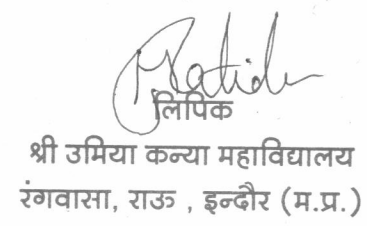 लिपिक
श्री उमिया कन्या महाविद्यालय
रंगवासा, राऊ , इन्दौर (म.प्र.)